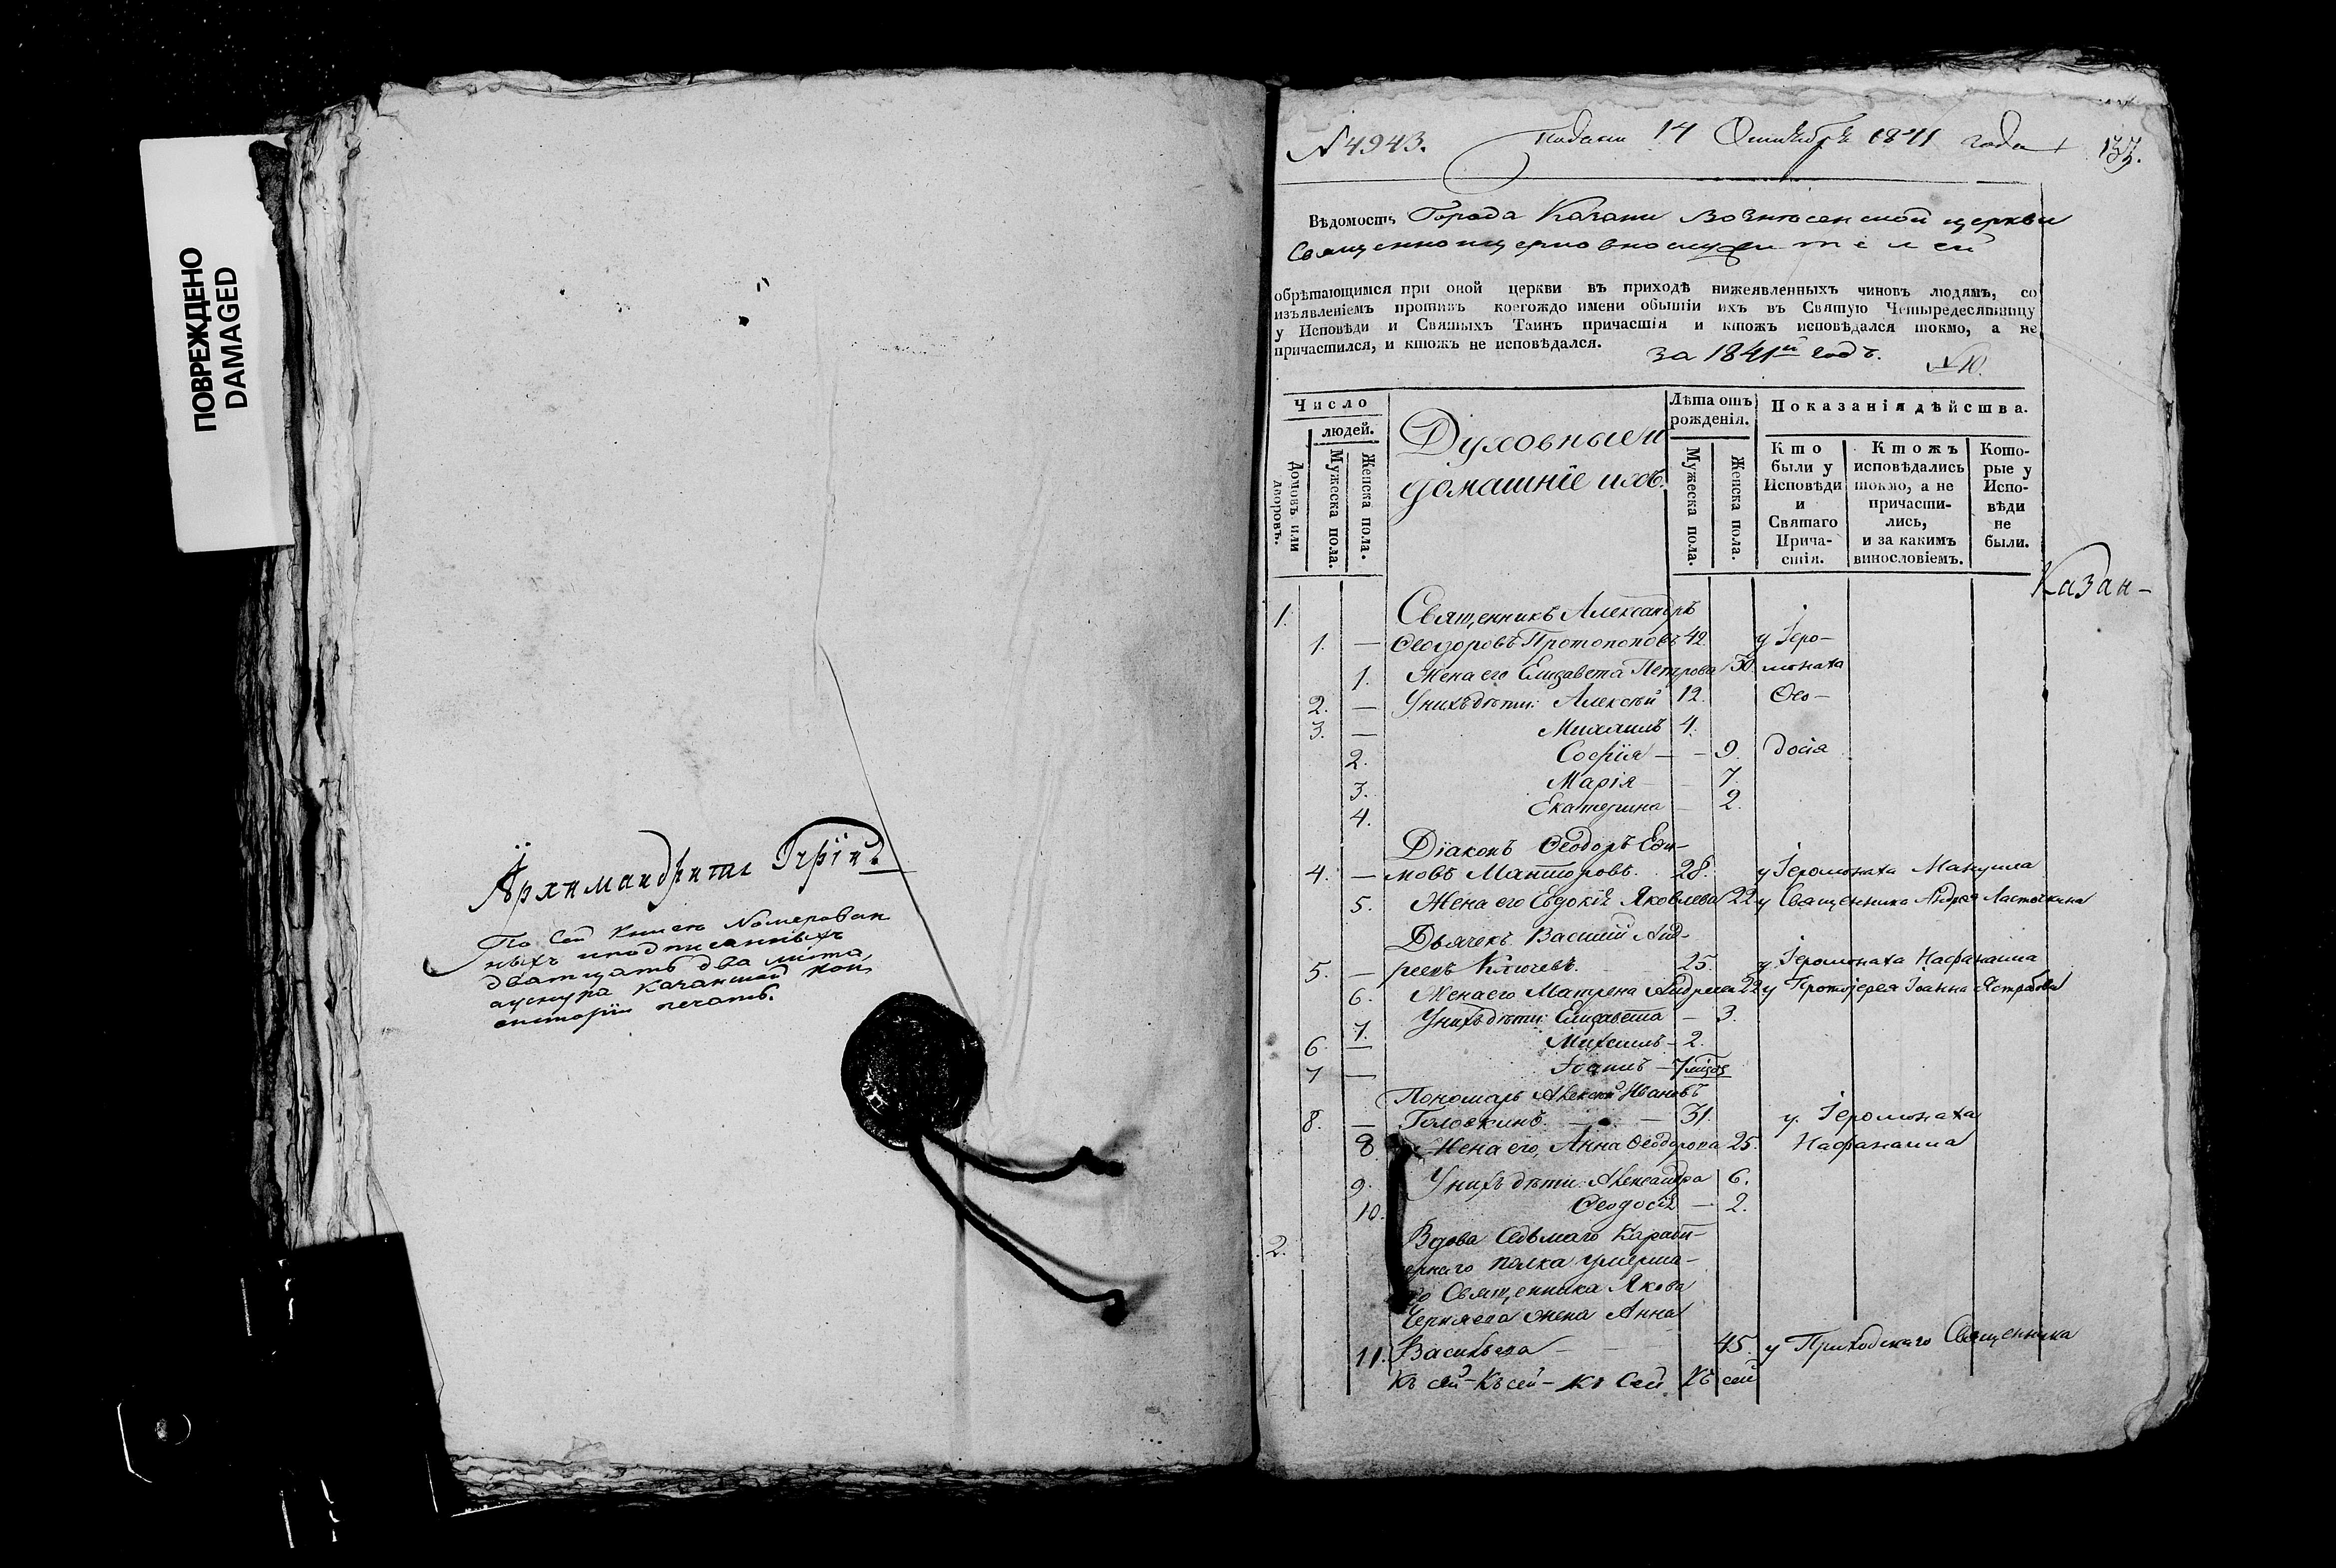 ПОВРЕЖДЕНО
DAMAGED
Архимандритъ
По сей книге Номерован
ныхъ и подписанныхъ
дватцать два листа,
а у снура Казанской кон
систорiи печать.
N 4943. Подана 14 Октября 1841 года
Вѣдомость Города Казани Вознесенской церкви
Священноцерковнослужителей
обрѣтающимся при оной церкви въ приходѣ нижеявленныхъ чиновъ людямъ, со
изъявленiемъ противъ коегождо имени бытiи ихъ въ Святую Четыредесятницу
у Исповѣди и Святыхъ Таинъ причастiя и ктожъ исповѣдался токмо, а не
причастился, и ктожъ не исповѣдался. за 1841й годъ.
№ 10.
Число
людей.
Домовъ или дворовъ.
Мужеска пола.
Женска пола.
Духовные и
домашнiе ихъ.
Лѣта отъ
рожденiя.
Мужеска пола.
Женска пола.
Показанiя дѣйства.
Кто
были у
Исповѣди
и
Святаго
Прича-
стiя.
Ктожъ
исповѣдались
токмо, а не
причасти-
лись,
и за какимъ
винословiемъ.
Кото-
рые у
Испо-
вѣди
не
были.
Казан-
1. Священникъ Александръ
1. — Ѳеодоровъ Протопоповъ 42. у Iеро-
1. Жена его Елизавета Петрова 30. монаха
2. — У нихъ дѣти: Алексѣй 12. Ѳео-
3. — Михаилъ 4.
2. Софiя — — 9. досiя
3. Марiя — — 7.
4. Екатерина — 2.
Дiаконъ Ѳеодоръ Ефи-
4. — мовъ Мапторовъ. 28. у Iеромонаха Мануила
5. Жена его Евдокiя Яковлева 22 у Священника Андрея Ласточкина
Дьячекъ Василiй Анд-
5. — реевъ Ключевъ. 25. у Iеромонаха Нафанаила
6. Жена его Матрена Андреева 22 у Протоiерея Iоанна Ястребова
7. У нихъ дѣти: Елизавета — 3.
6. — Михаилъ — 2.
7 — Iоаннъ — 7 мѣсяц
Пономарь Алексѣй Ивановъ
8. — Головкинъ. — — 31. у Iеромонаха
8. Жена его, Анна Ѳеодорова 25. Нафанаила
9. У нихъ дѣти: Александра 6.
10. Ѳеодосiя — 2.
2. Вдова Седьмаго Караби-
ернаго полка умерша-
го Священника Якова
Черняева жена Анна
11. Васильева — — — 45. у Приходскаго Священника
Къ сей — Къ сей — Къ Сей Къ сей